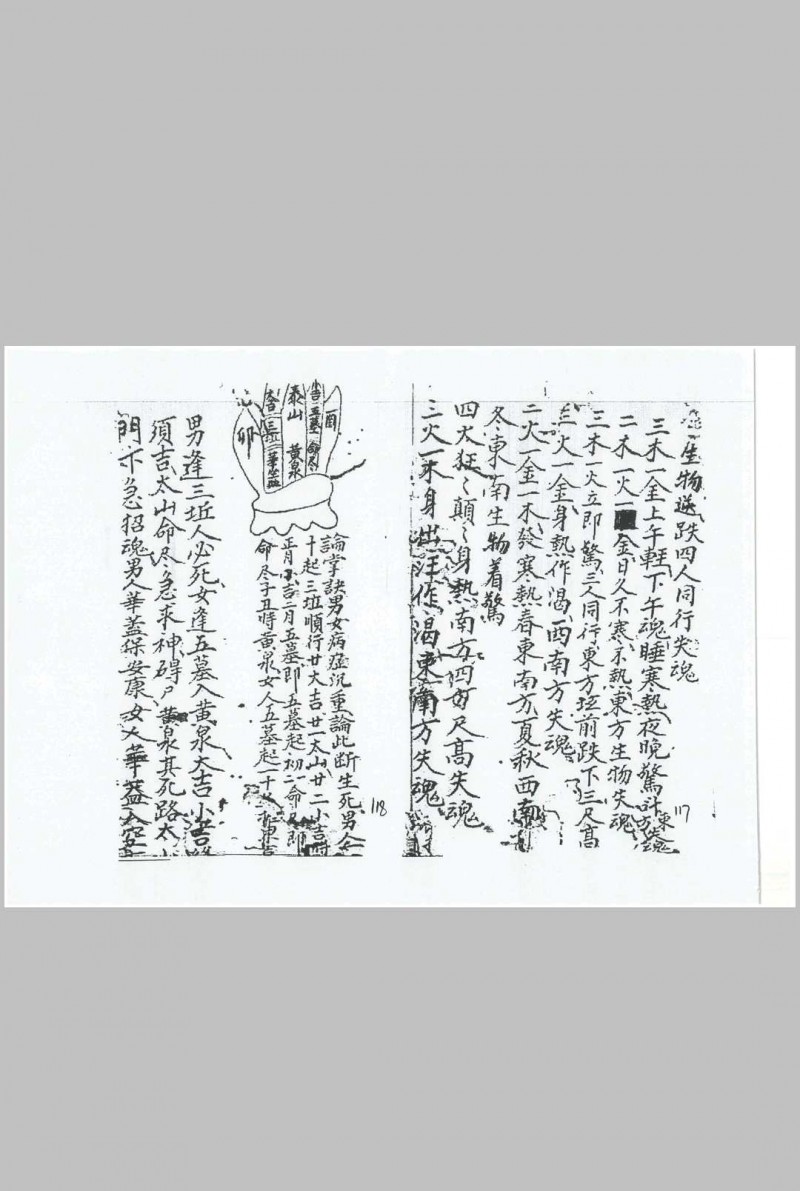 生物送跌四人同行失魂
三木一金上午輕下午魂睡寒熱夜晚驚叫東方失魂
二木一火一金日久不寒不熱東方生物失魂
三木一火立即驚三人同行東方坵前跌下三尺高
三火一金身熱作渴西南方失魂
二火一金一木發寒熱春東南方夏秋西南
冬東南生物着驚
四火狂々顛々身熱南方四五尺高失魂
三火一木身出汗作渴東南方失魂
117
酉
小吉 五墓 命尽
泰山 黄泉
大吉 三坵 華盖
卯
論掌訣男女病症沉重論此断生死男人
十起三坵順行廿大吉廿一太山廿二小吉時
正月小吉二月五墓即五墓起初一命尽即
命尽子丑時黄泉女人五墓起一十
118
男逢三坵人必死女逢五墓入黄泉大吉小吉
須吉太山命尽急求神碍户黄泉其死路太
門下急招魂男人華盖保安康女人華盖